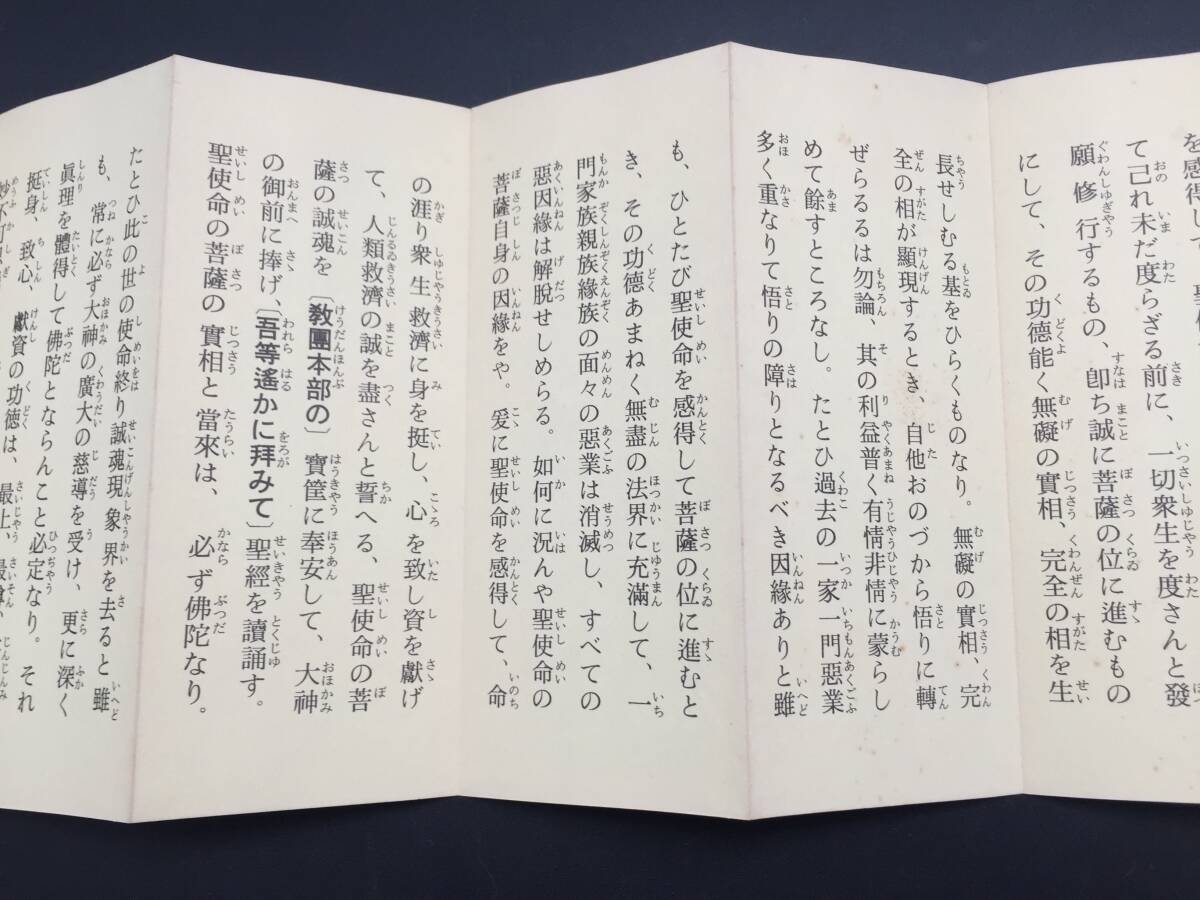 を感得して
て己れ未だ度らざる前に、一切衆生を度さんと發
願修行するもの、卽ち誠に菩薩の位に進むもの
にして、その功德能く無礙の實相、完全の相を生
長せしむる基をひらくものなり。無礙の實相、完
全の相が顯現するとき、自他おのづから悟りに轉
ぜらるるは勿論、其の利益普く有情非情に蒙らし
めて餘すところなし。たとひ過去の一家一門惡業
多く重なりて悟りの障りとなるべき因緣ありと雖
も、ひとたび聖使命を感得して菩薩の位に進むと
き、その功德あまねく無盡の法界に充滿して、一
門家族親族緣族の面々の惡業は消滅し、すべての
惡因緣は解脫せしめらる。如何に況んや聖使命の
菩薩自身の因緣をや。爰に聖使命を感得して、命
の涯り衆生救濟に身を挺し、心を致し資を獻げ
て、人類救濟の誠を盡さんと誓へる、聖使命の菩
薩の誠魂を〔敎團本部の〕寶筐に奉安して、大神
の御前に捧げ、〔吾等遙かに拜みて〕聖經を讀誦す。
聖使命の菩薩の實相と當來は、必ず佛陀なり。
たとひ此の世の使命終り誠魂現象界を去ると雖
も、常に必ず大神の廣大の慈導を受け、更に深く
眞理を體得して佛陀とならんこと必定なり。それ
挺身、致心、獻資の功德は、最上、最尊、